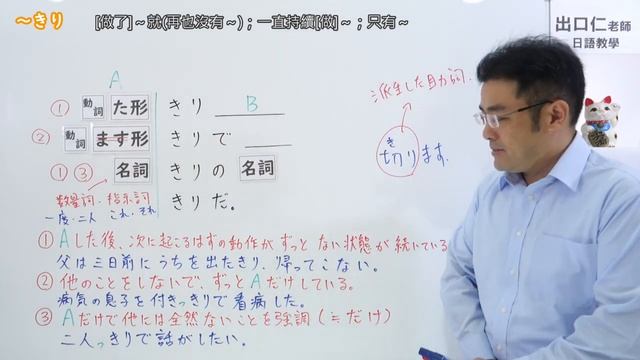 ～きり
[做了]～就(再也沒有～)；一直持續[做]～；只有～
出口仁老師
日語教學
A
① 動詞 た形 きり B
② 動詞 ます形 きりで
①③ 名詞 きりの 名詞
数量詞・指示詞 きりだ。
一度・二人 これ・それ
派生した助詞。
き
切ります。
①Aした後、次に起こるはずの動作がずっとない状態が続いている
父は三日前にうちを出たきり、帰ってこない。
②他のことをしないで、ずっとAだけしている。
病気の息子を付きっきりで看病した。
③Aだけで他には全然ないことを強調(≒だけ)
二人っきりで話がしたい。